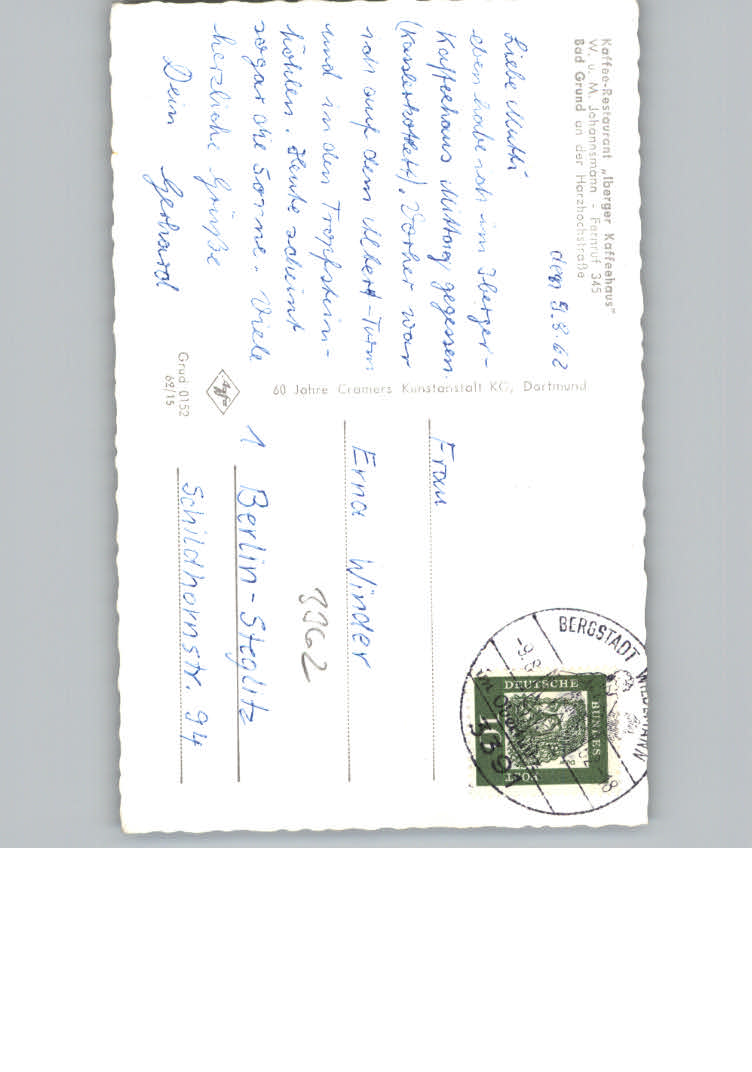 Kaffee-Restaurant „Iberger Kaffeehaus"
W. u. M. Johannsmann - Fernruf 345
Bad Grund an der Harzhochstraße
den 9.8.62
Liebe Mutti
eben habe ich im Iberger-
Kaffeehaus Mittag gegessen
(Kasslerkotlett). Vorher war
ich auf dem Albert-Turm
und in den Tropfstein-
höhlen. Heute scheint
sogar die Sonne. Viele
herzliche Grüße
Dein Gerhard
60 Jahre Cramers Kunstanstalt KG, Dortmund
Agfa
Grud 0152
62/15
Frau
Erna Winder
3362
1 Berlin-Steglitz
Schildhornstr. 94
BERGSTADT WILDEMANN
-9.8
-8
3391
DEUTSCHE
BUNDES
POST
10